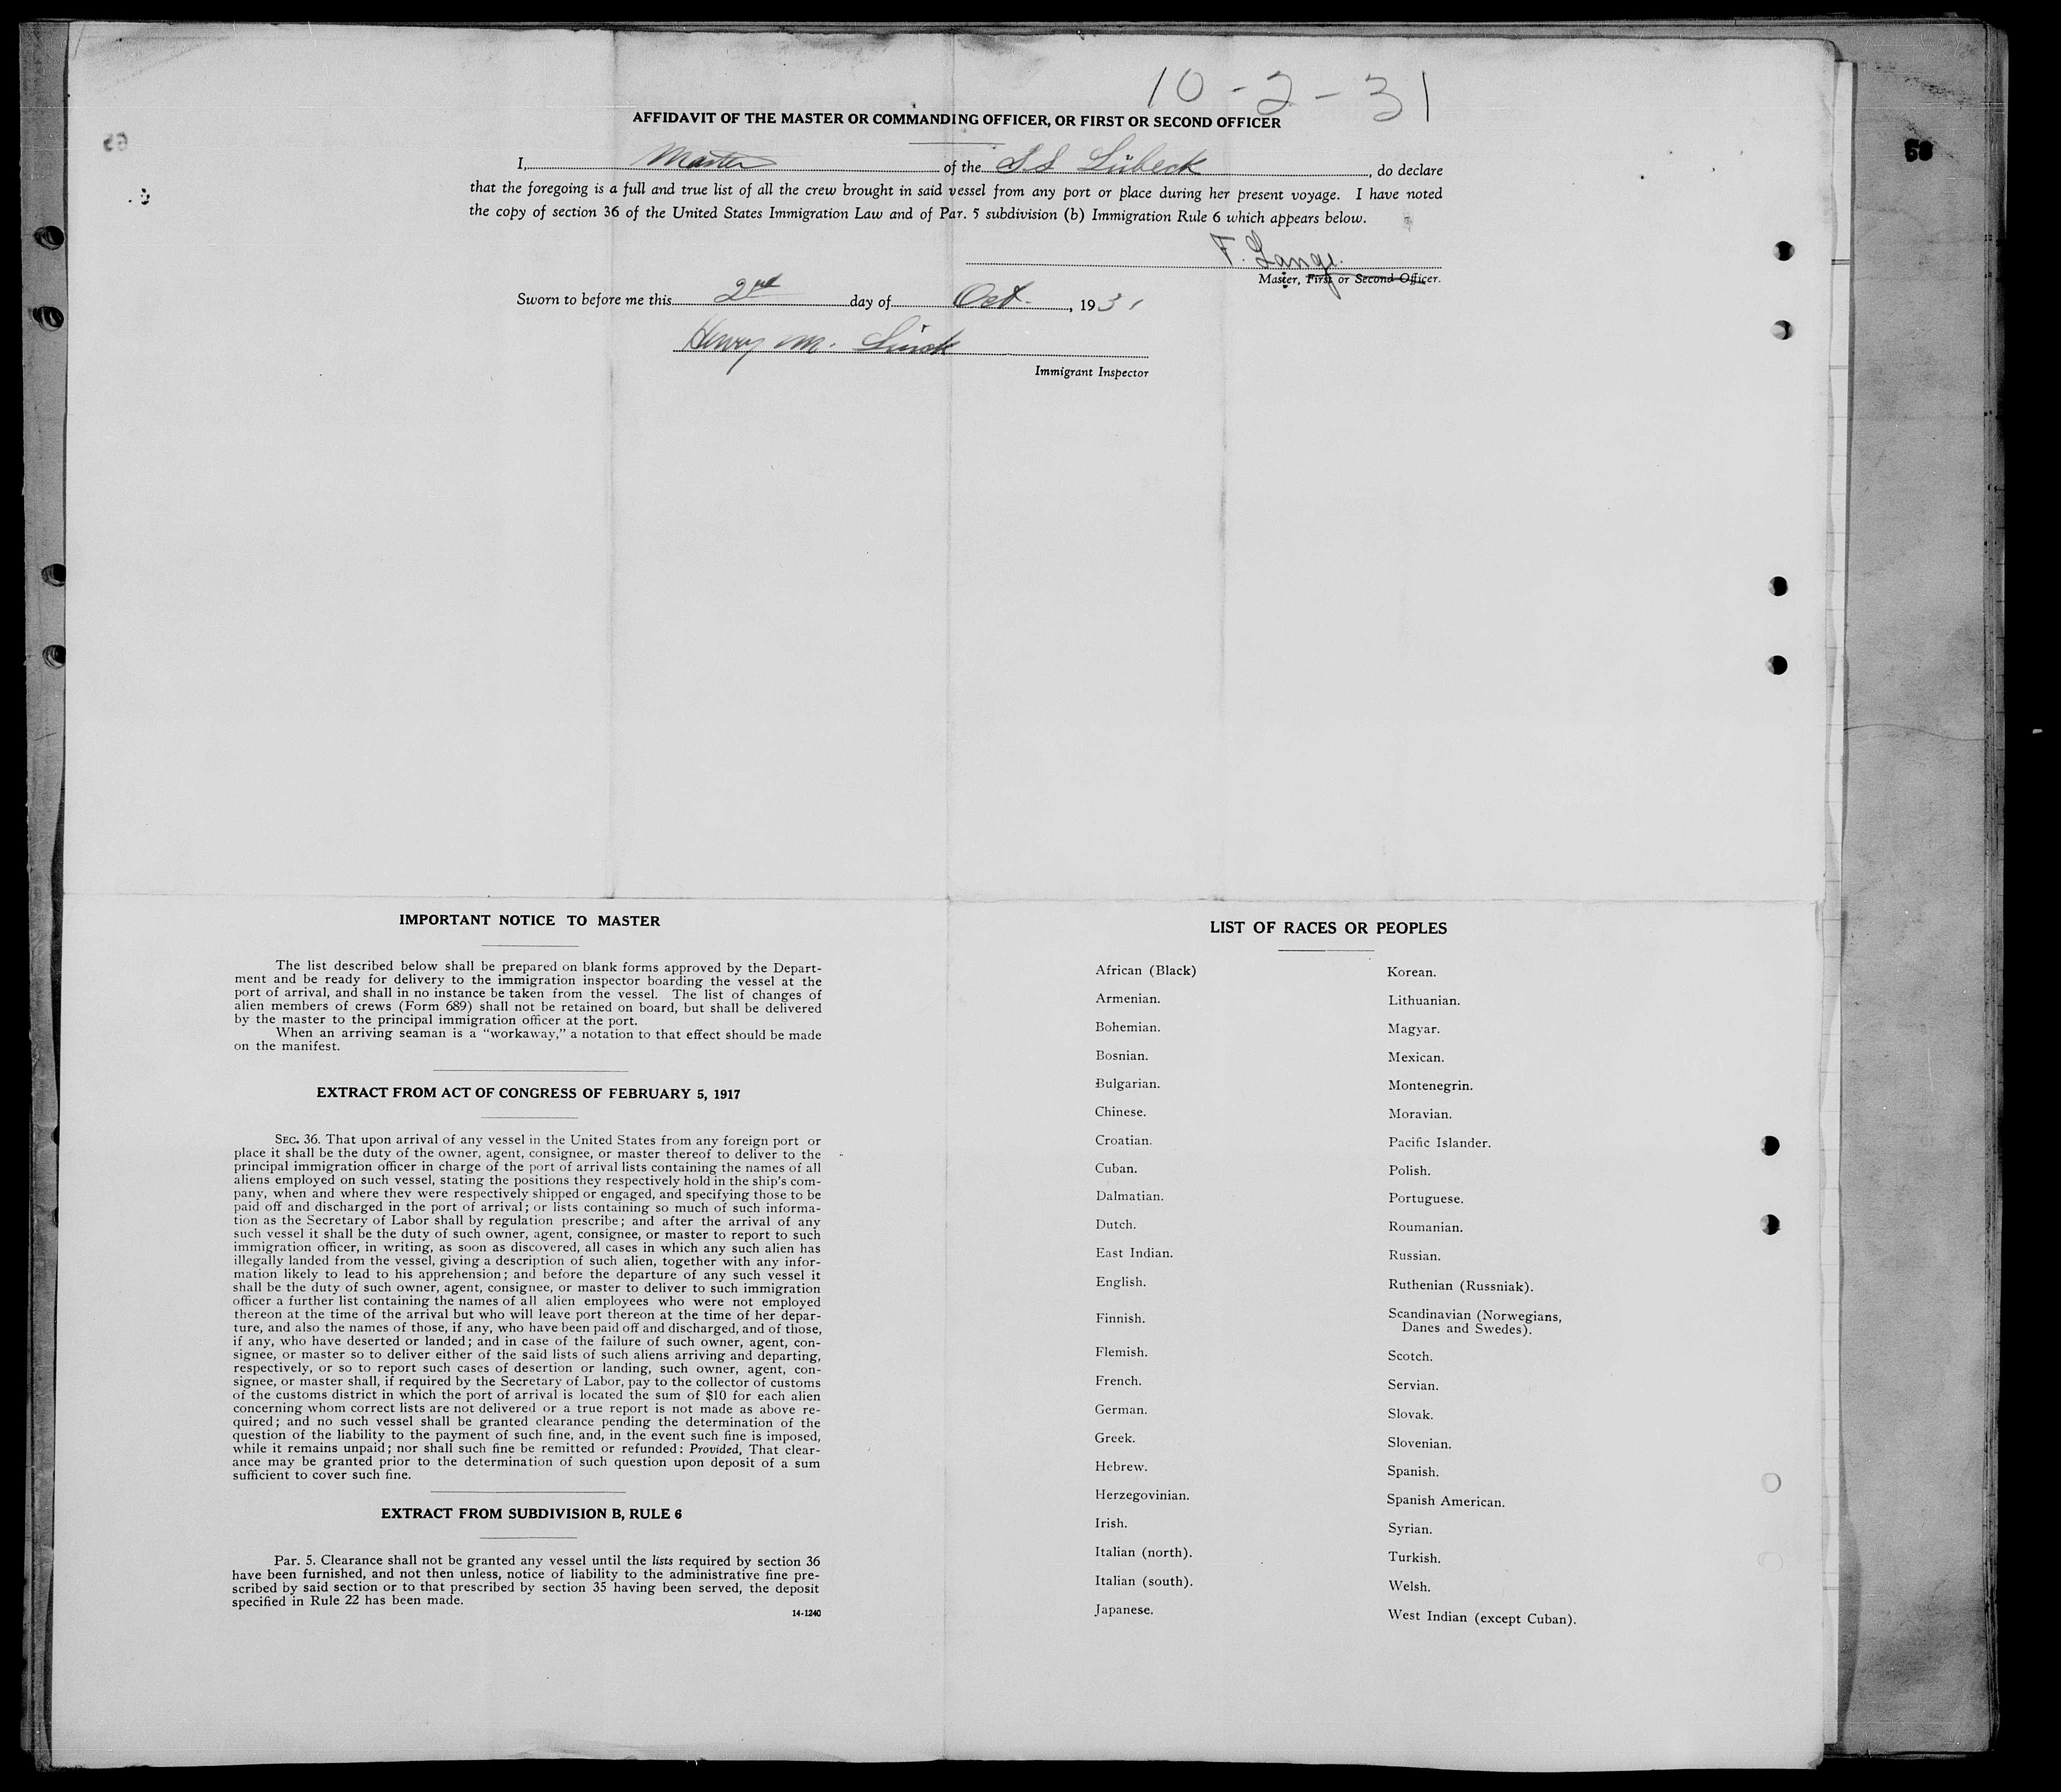 10-2-31
AFFIDAVIT OF THE MASTER OR COMMANDING OFFICER, OR FIRST OR SECOND OFFICER
I, Master of the SS Lübeck, do declare
that the foregoing is a full and true list of all the crew brought in said vessel from any port or place during her present voyage. I have noted
the copy of section 36 of the United States Immigration Law and of Par. 5 subdivision (b) Immigration Rule 6 which appears below.
F. Lange.
Master, First or Second Officer.
Sworn to before me this 2nd day of Oct., 1931
Henry M.
Immigrant Inspector
58
IMPORTANT NOTICE TO MASTER
The list described below shall be prepared on blank forms approved by the Depart-
ment and be ready for delivery to the immigration inspector boarding the vessel at the
port of arrival, and shall in no instance be taken from the vessel. The list of changes of
alien members of crews (Form 689) shall not be retained on board, but shall be delivered
by the master to the principal immigration officer at the port.
When an arriving seaman is a “workaway,” a notation to that effect should be made
on the manifest.
EXTRACT FROM ACT OF CONGRESS OF FEBRUARY 5, 1917
SEC. 36. That upon arrival of any vessel in the United States from any foreign port or
place it shall be the duty of the owner, agent, consignee, or master thereof to deliver to the
principal immigration officer in charge of the port of arrival lists containing the names of all
aliens employed on such vessel, stating the positions they respectively hold in the ship's com-
pany, when and where they were respectively shipped or engaged, and specifying those to be
paid off and discharged in the port of arrival; or lists containing so much of such informa-
tion as the Secretary of Labor shall by regulation prescribe; and after the arrival of any
such vessel it shall be the duty of such owner, agent, consignee, or master to report to such
immigration officer, in writing, as soon as discovered, all cases in which any such alien has
illegally landed from the vessel, giving a description of such alien, together with any infor-
mation likely to lead to his apprehension; and before the departure of any such vessel it
shall be the duty of such owner, agent, consignee, or master to deliver to such immigration
officer a further list containing the names of all alien employees who were not employed
thereon at the time of the arrival but who will leave port thereon at the time of her depar-
ture, and also the names of those, if any, who have been paid off and discharged, and of those,
if any, who have deserted or landed; and in case of the failure of such owner, agent, con-
signee, or master so to deliver either of the said lists of such aliens arriving and departing,
respectively, or so to report such cases of desertion or landing, such owner, agent, con-
signee, or master shall, if required by the Secretary of Labor, pay to the collector of customs
of the customs district in which the port of arrival is located the sum of $10 for each alien
concerning whom correct lists are not delivered or a true report is not made as above re-
quired; and no such vessel shall be granted clearance pending the determination of the
question of the liability to the payment of such fine, and, in the event such fine is imposed,
while it remains unpaid; nor shall such fine be remitted or refunded: Provided, That clear-
ance may be granted prior to the determination of such question upon deposit of a sum
sufficient to cover such fine.
EXTRACT FROM SUBDIVISION B, RULE 6
Par. 5. Clearance shall not be granted any vessel until the lists required by section 36
have been furnished, and not then unless, notice of liability to the administrative fine pre-
scribed by said section or to that prescribed by section 35 having been served, the deposit
specified in Rule 22 has been made.
14-1240
LIST OF RACES OR PEOPLES
African (Black)
Armenian.
Bohemian.
Bosnian.
Bulgarian.
Chinese.
Croatian.
Cuban.
Dalmatian.
Dutch.
East Indian.
English.
Finnish.
Flemish.
French.
German.
Greek.
Hebrew.
Herzegovinian.
Irish.
Italian (north).
Italian (south).
Japanese.
Korean.
Lithuanian.
Magyar.
Mexican.
Montenegrin.
Moravian.
Pacific Islander.
Polish.
Portuguese.
Roumanian.
Russian.
Ruthenian (Russniak).
Scandinavian (Norwegians,
Danes and Swedes).
Scotch.
Servian.
Slovak.
Slovenian.
Spanish.
Spanish American.
Syrian.
Turkish.
Welsh.
West Indian (except Cuban).